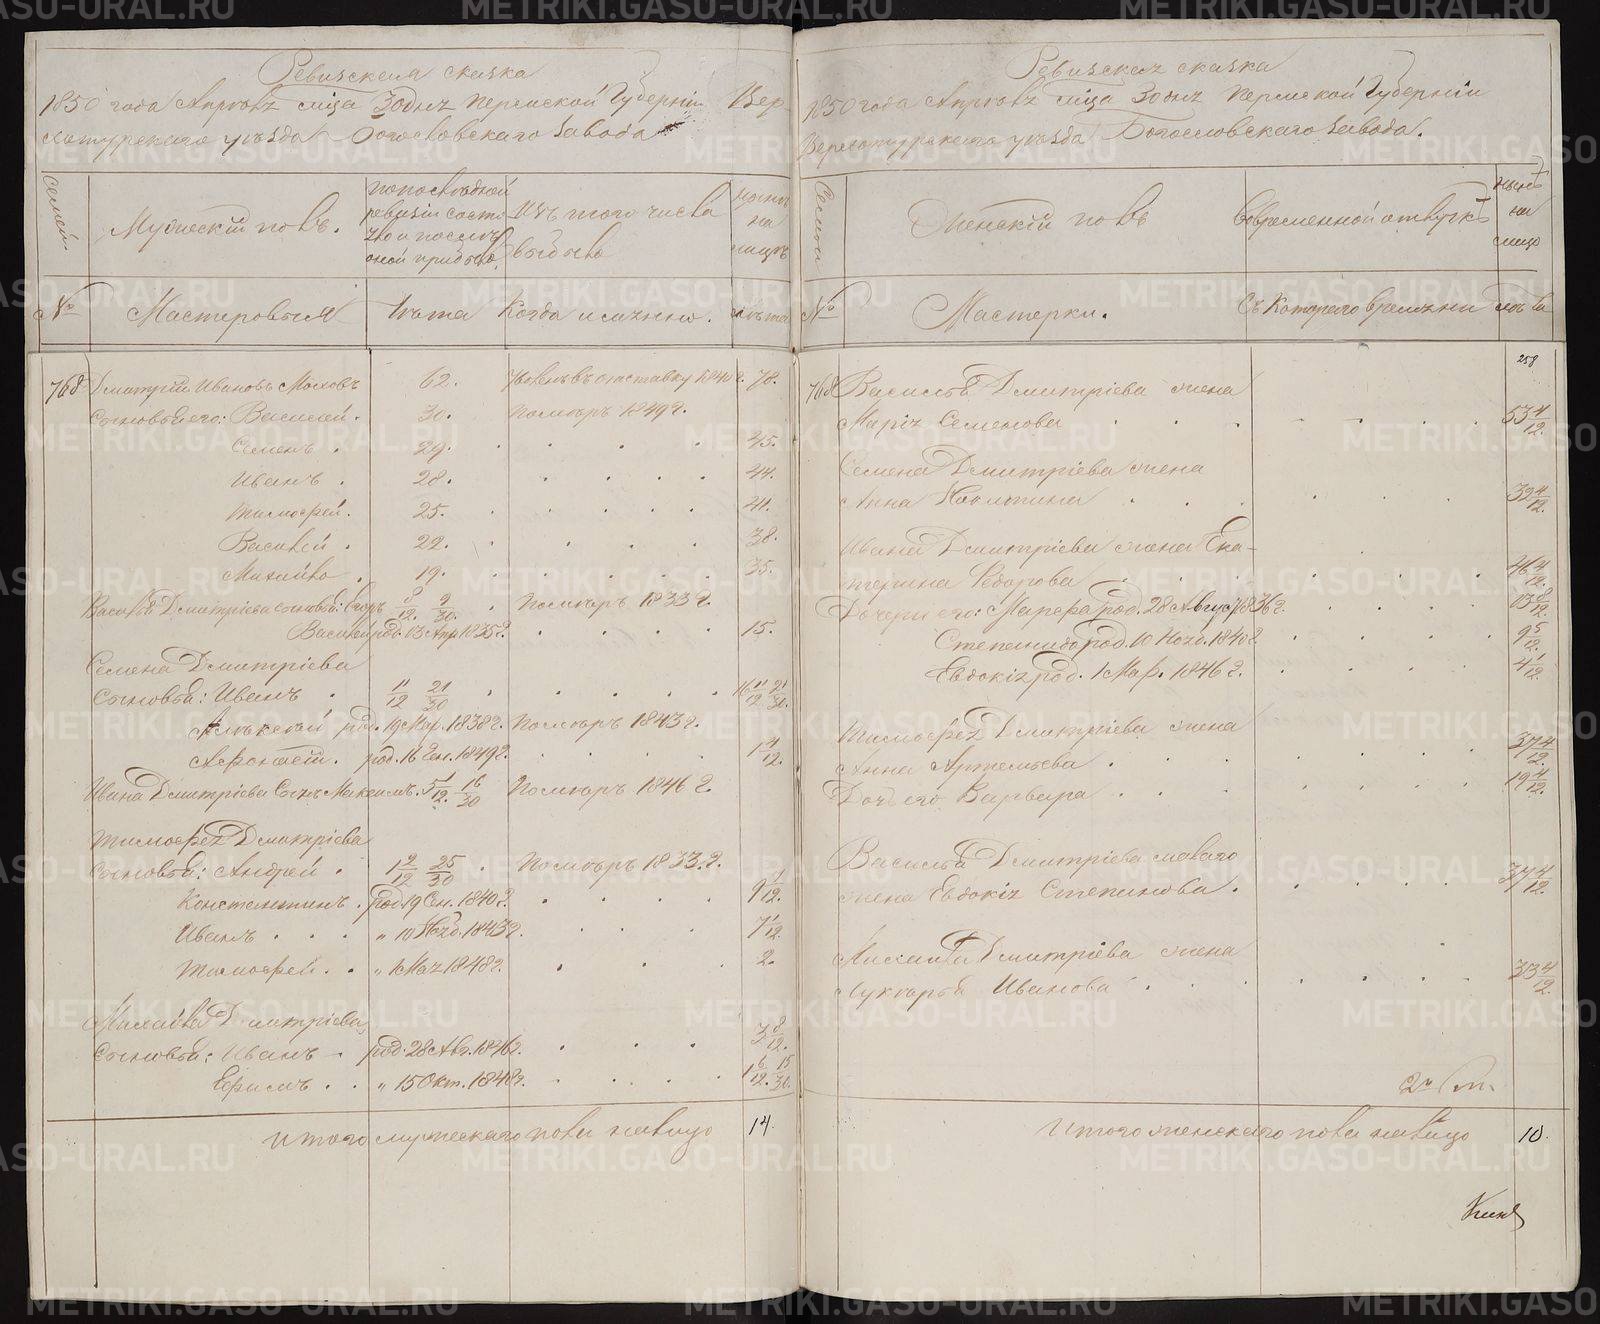 Ревизская сказка
1850 года Апреля м-ца 30 дня Пермской Губернiи Вер-
хотурскаго уѣзда Богословскаго завода
Семей №
Мужескiй полъ.
по послѣдней
ревизiи состо-
яло и послѣ
оной прибыло
Изъ того числа
выбыло
нынѣ
на
лицо
Мастеровыя
Лѣта
Когда именно.
лѣта
768 Дмитрiй Ивановъ 62. Уволенъ въ отставку 1840 г. 78.
Сыновья его: Василей. 30. Померъ 1849 г.
Семенъ. 29. 45.
Иванъ. 28. 44.
Тимофей. 25. 41.
Василей. 22. 38.
Михайло. 19. 35.
Василья Дмитрiева сыновья: 8/12 9/30 Померъ 1833 г.
Василiй род. 13 Апр. 1835 г. 15.
Семена Дмитрiева
Сыновья: Иванъ. 11/12 21/30 16 11/12 21/30.
Алексей род. 19 Мар. 1838 г. Померъ 1843 г.
Афонасiй. род. 16 Ген. 1849 г. 1 4/12.
Ивана Дмитрiева Сынъ Максимъ. 5 1/12 16/30 Померъ 1846 г.
Тимофея Дмитрiева
Сыновья: Андрей. 1 2/12 25/30 Померъ 1833 г.
Константинъ. род. 19 1840 г. 9 1/12.
Иванъ . . . „ 10 1843 г. 7 1/12.
Тимофей. . „ 1 Мая 1848 г. 2.
Михайла Дмитрiева
Сыновья: Иванъ. род. 28 Авг. 1846 г. 3 8/12.
Ефимъ. . „ 15 Окт. 1848 г. 1 6/12. 15/30.
Итого мужескаго пола налицо 14.
Ревизская сказка
1850 года Апреля м-ца 30 дня Пермской Губернiи
Верхотурскаго уѣзда Богословскаго завода.
Семей №
Женскiй полъ
Въ временной отлучкѣ
нынѣ
на
лицо
Мастерки.
Съ котораго времени
лѣта
258
768 Василья Дмитрiева жена
Марiя Семенова 53 4/12.
Семена Дмитрiева жена
Анна 32 4/12.
Ивана Дмитрiева жена Ека-
терина Федорова 46 4/12.
Дочери его: Марфа род. 28 Август. 1836 г. 13 8/12.
Степанида род. 10 1840 г. 9 5/12.
Евдокiя род. 1 Мар. 1846 г. 4 1/12.
Тимофея Дмитрiева жена
Анна Артемьева 37 4/12.
Дочь его Варвара 19 4/12.
Василья Дмитрiева малаго
жена Евдокiя Степанова. 37 4/12.
Михаила Дмитрiева жена
Лукерья Иванова 33 4/12.
Итого женскаго пола налицо 10.
METRIKI.GASO-URAL.RU